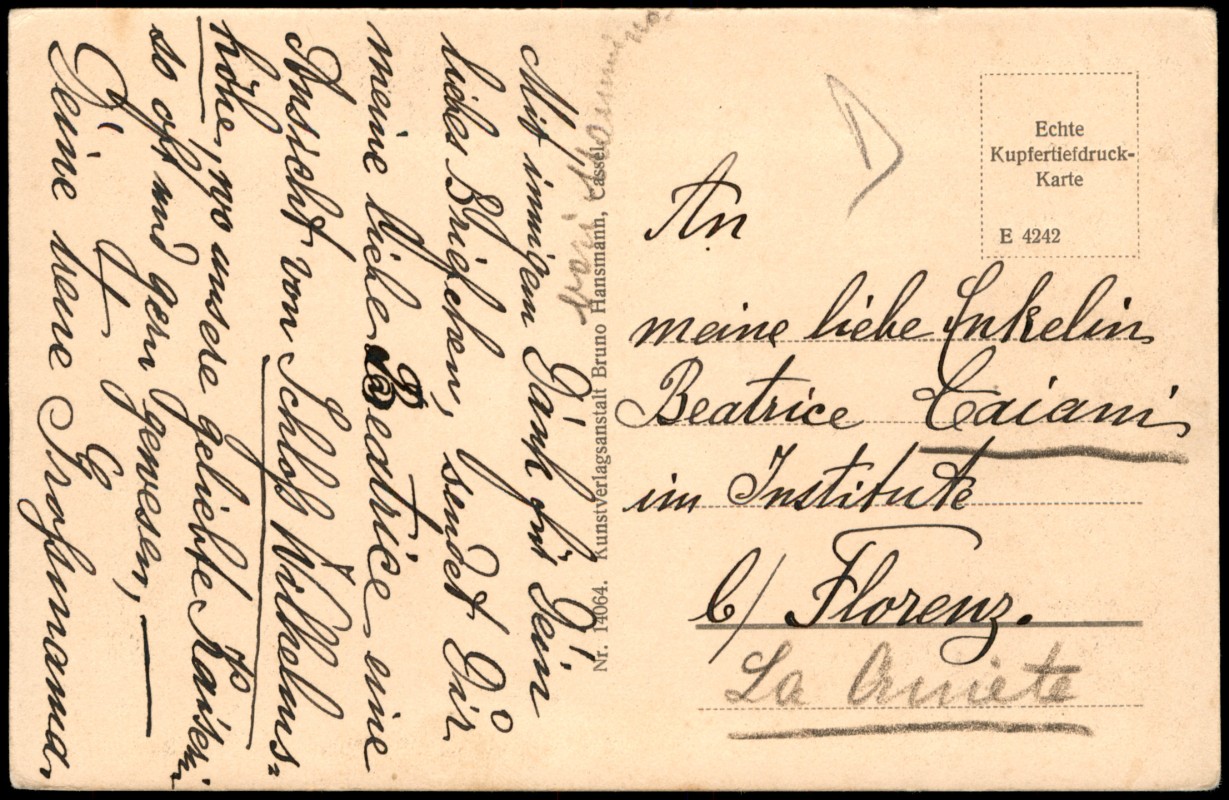 Mit innigem Dank für Dein
liebes Briefchen, sendet Dir
meine liebe Beatrice eine
Ansicht von Schloß Wilhelms-
höhe, wo unsere geliebte Kaiserin
so oft und gern gewesen, —
Deine treue Großmama.
Nr. 14064. Kunstverlagsanstalt Bruno Hansmann, Cassel.
Echte
Kupfertiefdruck-
Karte
E 4242
An
meine liebe Enkelin
Beatrice Caiani
im Institute
b/ Florenz.
La